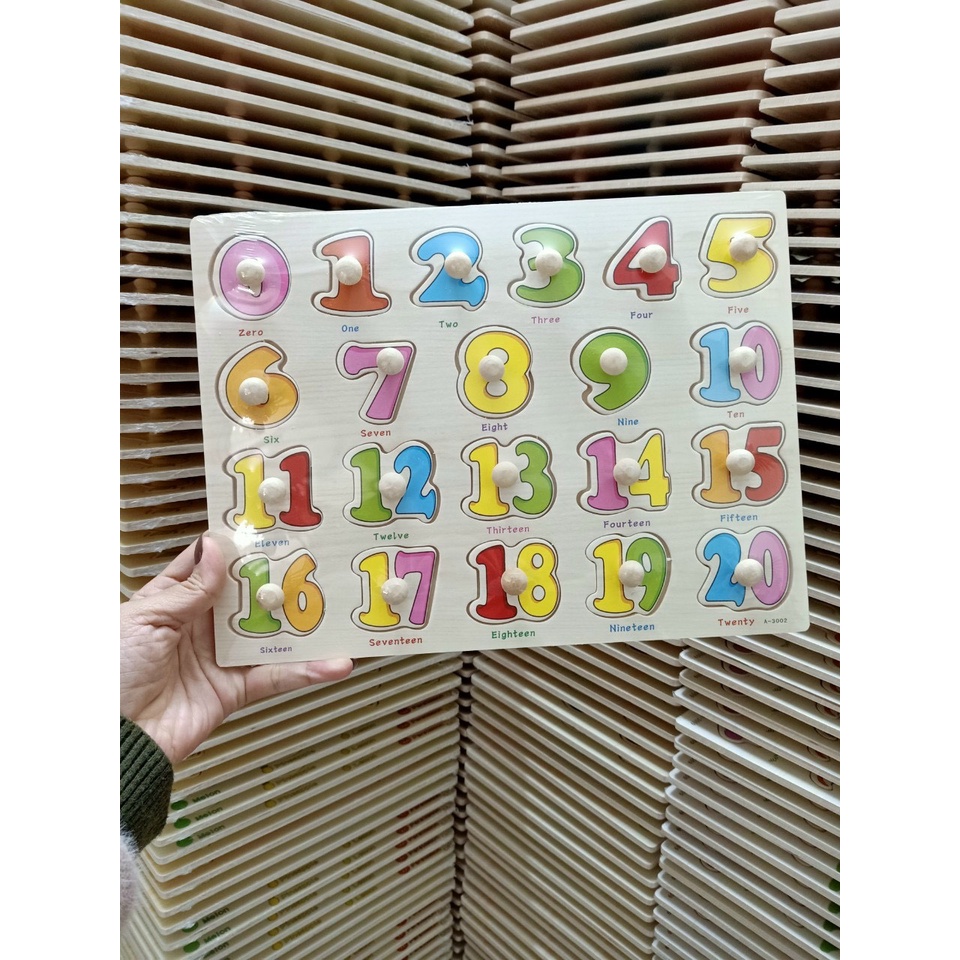 0 1 2 3 4 5
Zero One Two Three Four Five
6 7 8 9 10
Six Seven Eight Nine Ten
11 12 13 14 15
Eleven Twelve Thirteen Fourteen Fifteen
16 17 18 19 20
Sixteen Seventeen Eighteen Nineteen Twenty A-3002
Melon
Melon
Melon
Melon
Melon
Melon